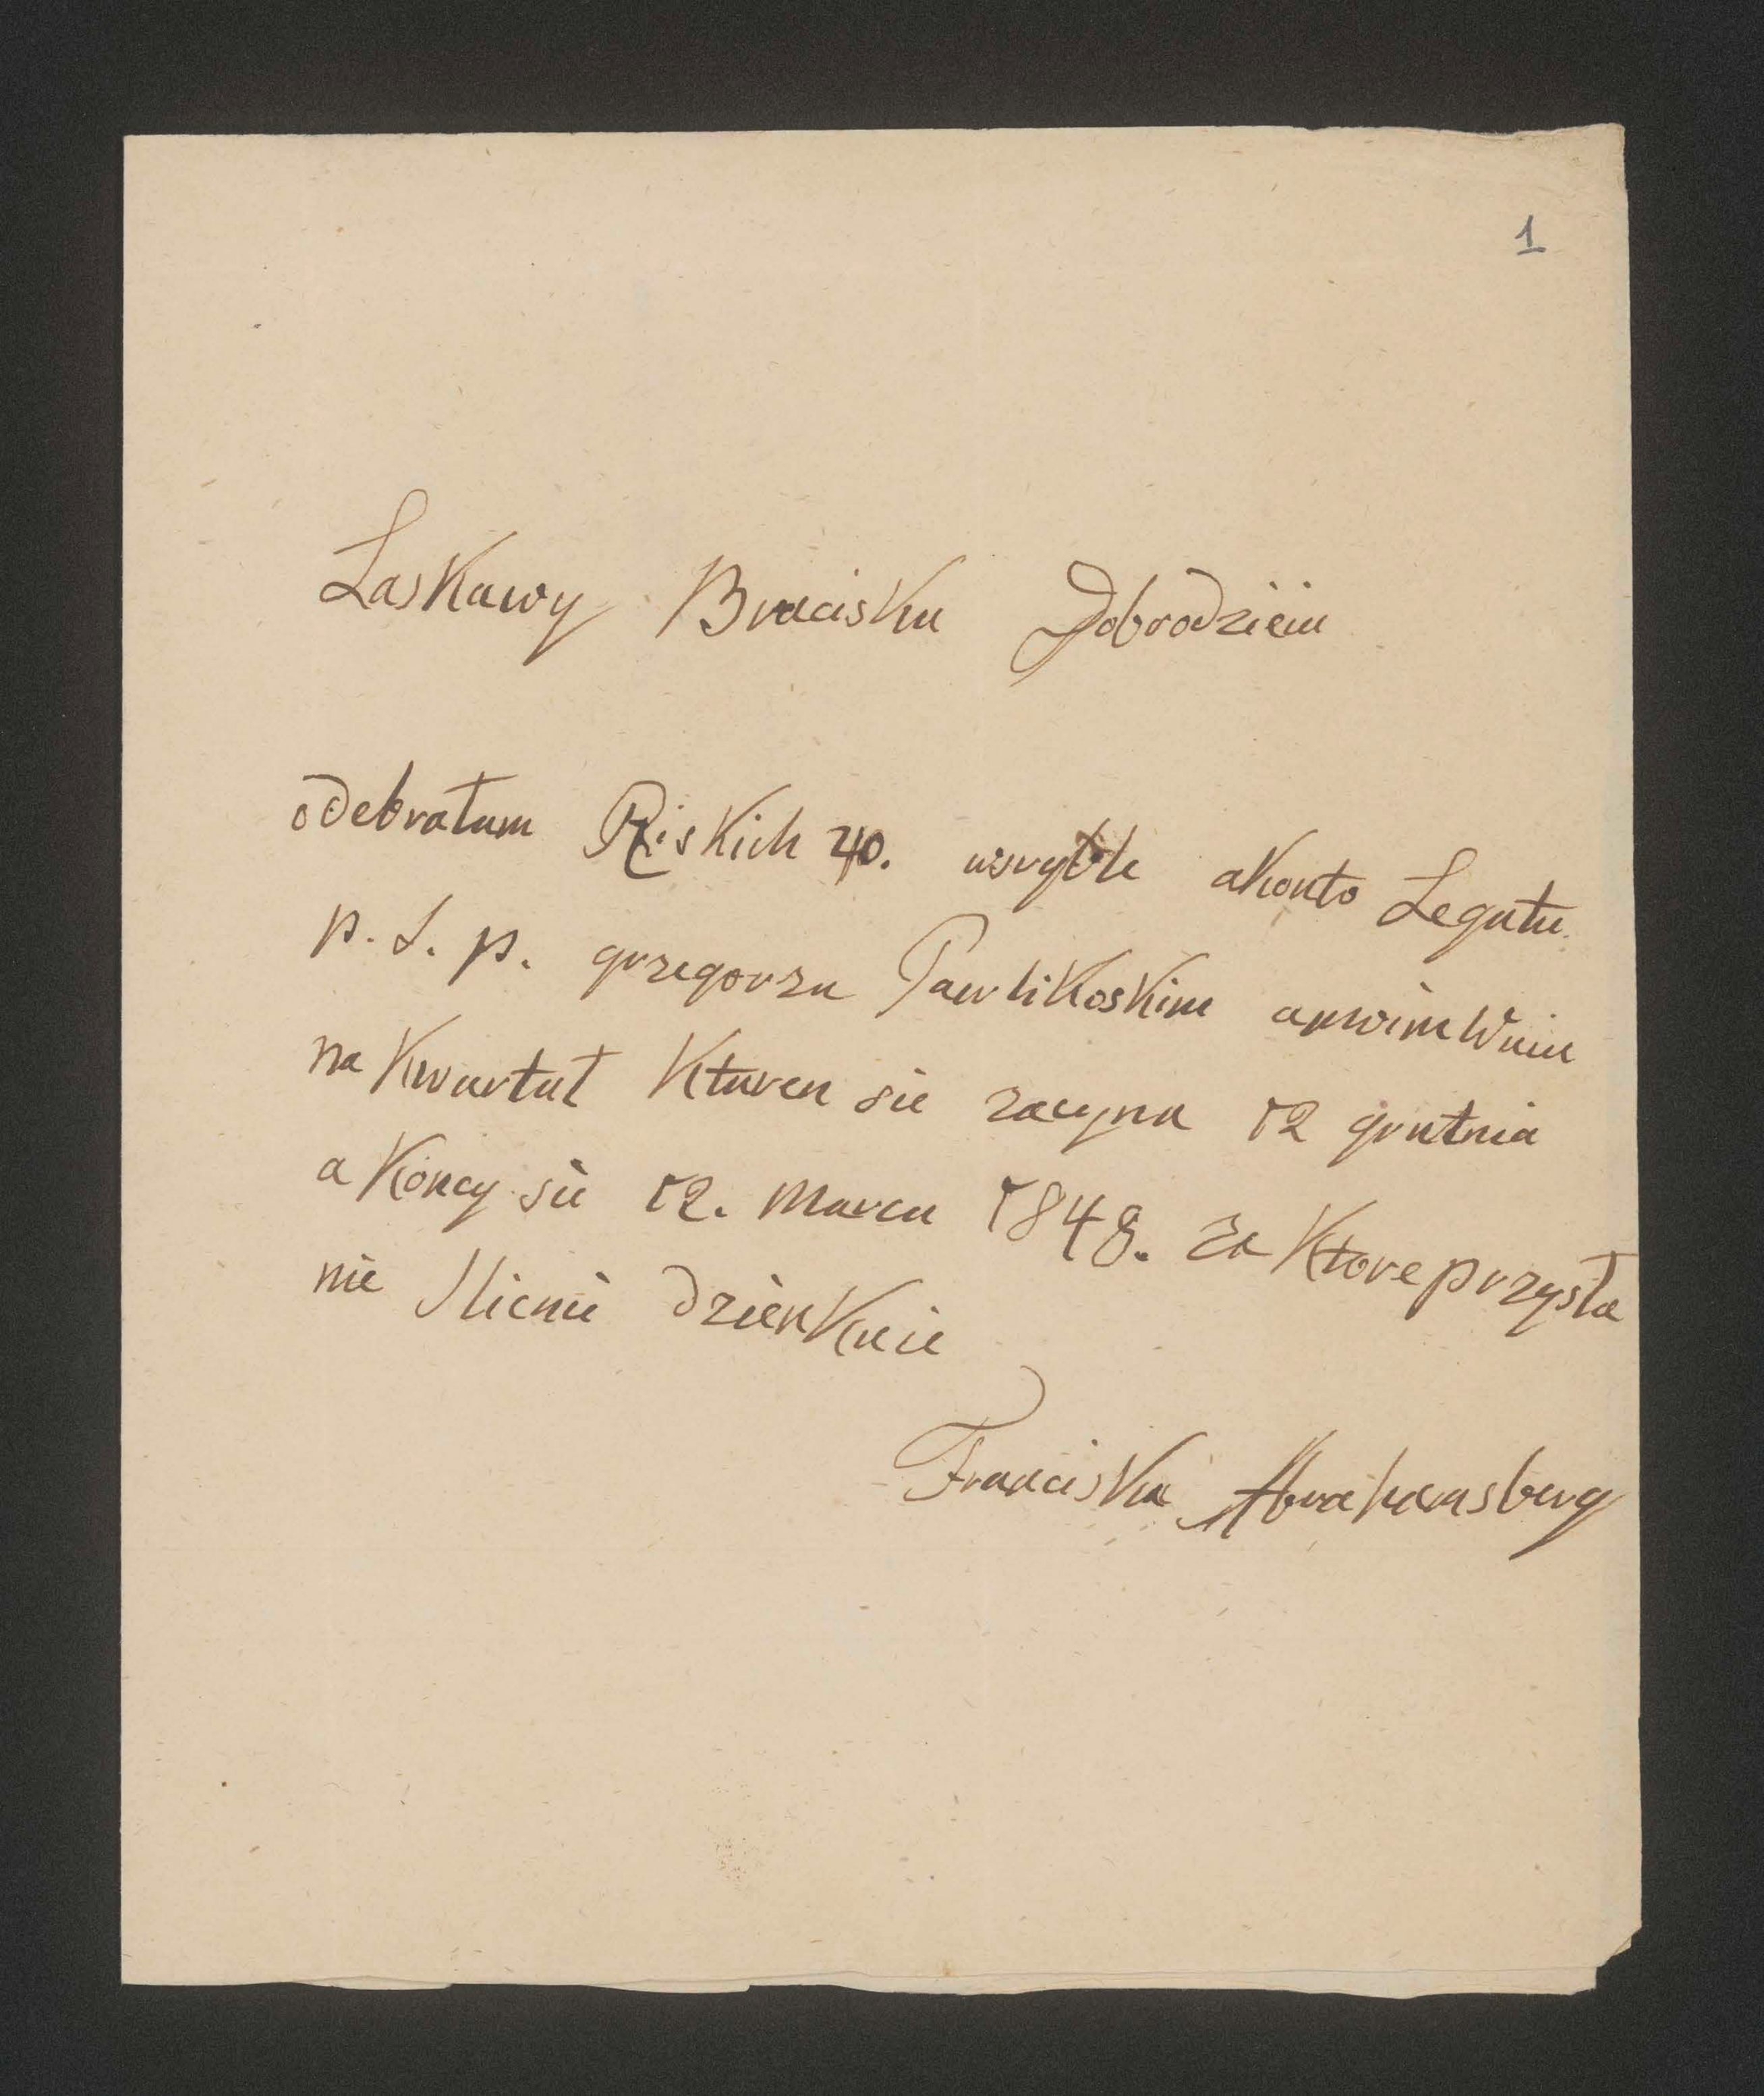 1
Laskawy Bracisku Dobrodzieiu
odebrałam Riskich 40. akonto Legatu
p. S. p. grzegorzu Pawlikoskim
na Kwartał Kturen sie zacyna 12 grutnia
a Koncy sie 12. Marca 1848. za Ktore przysła
nie slicnie dzienkuie
Franciska Abrahamsberg